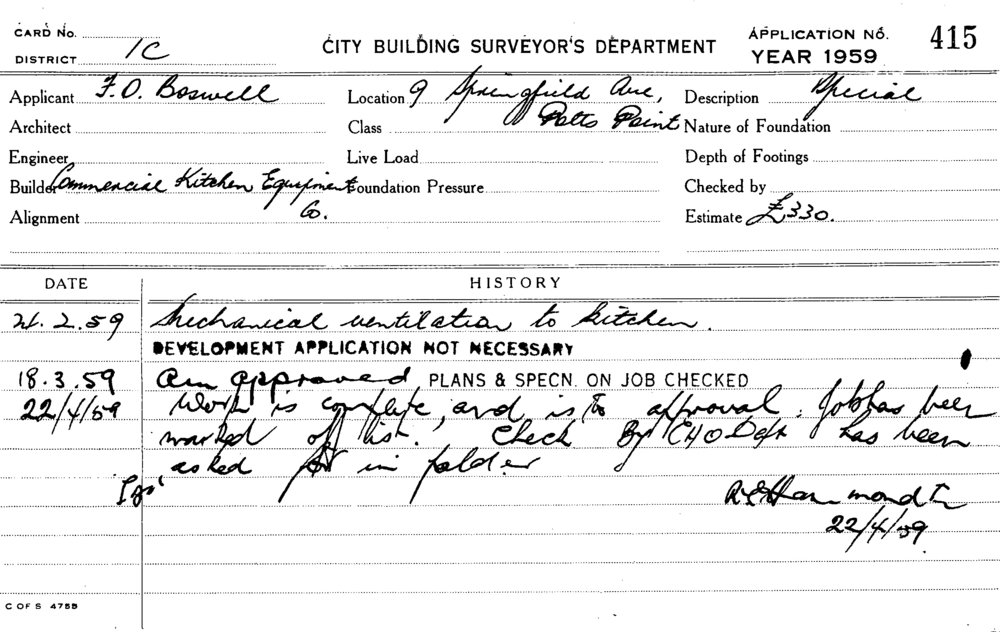 CARD No.
DISTRICT 1C
CITY BUILDING SURVEYOR'S DEPARTMENT
APPLICATION No. 415
YEAR 1959
Applicant F.O. Boswell Location 9 Springfield Ave, Description Special
Architect Class Potts Point Nature of Foundation
Engineer Live Load Depth of Footings
Builder Commercial Kitchen Equipment Foundation Pressure Checked by
Alignment Co. Estimate £330.
DATE HISTORY
2.59 Mechanical ventilation to kitchen.
DEVELOPMENT APPLICATION NOT NECESSARY
18.3.59 approved PLANS & SPECN. ON JOB CHECKED
22/4/59 Work is complete, and is to approval. Job has been
marked off list. Check By CHO Dept has been
asked for in folder
22/4/59
C OF S 4755